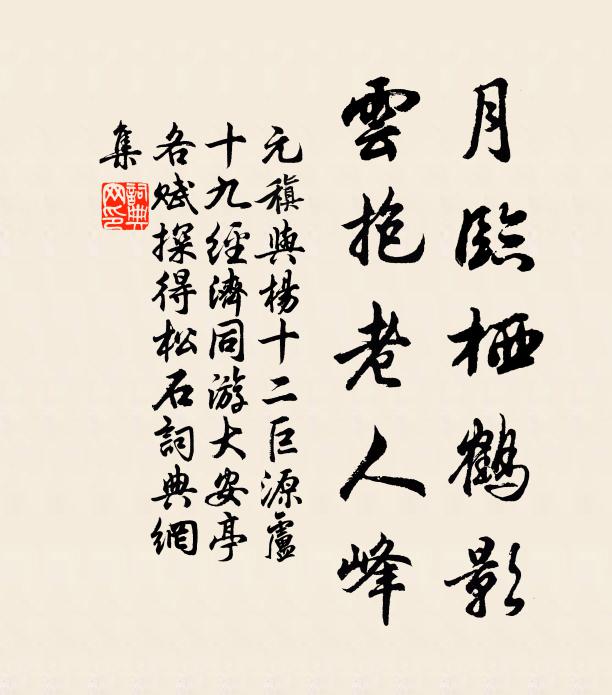 月臨栖鶴影
雲抱老人峰
元稹與楊十二巨源盧
十九經濟同游大安亭
各賦探得松石詞典網
集
詞典網印